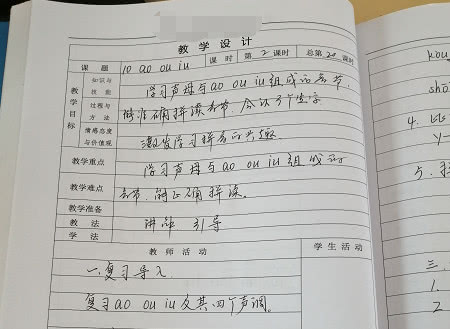 教 学 设 计
课 题 10 ao ou iu 课 时 第 2 课时 总第 20 课时
教学目标 知识与技能 学习声母与ao ou iu组成的音节,
过程与方法 能准确拼读音节 会认3个生字
情感态度与价值观 激发学习拼音的兴趣
教学重点 学习声母与ao ou iu 组成的
教学难点 音节,能正确拼读。
教学准备
教 法 讲解 引导
学 法
教 师 活 动 学 生 活 动
一、复习导入
复习ao ou iu 及其四个声调。
kou
shō
4. 比
y一
5. 拼
三.
1.
2